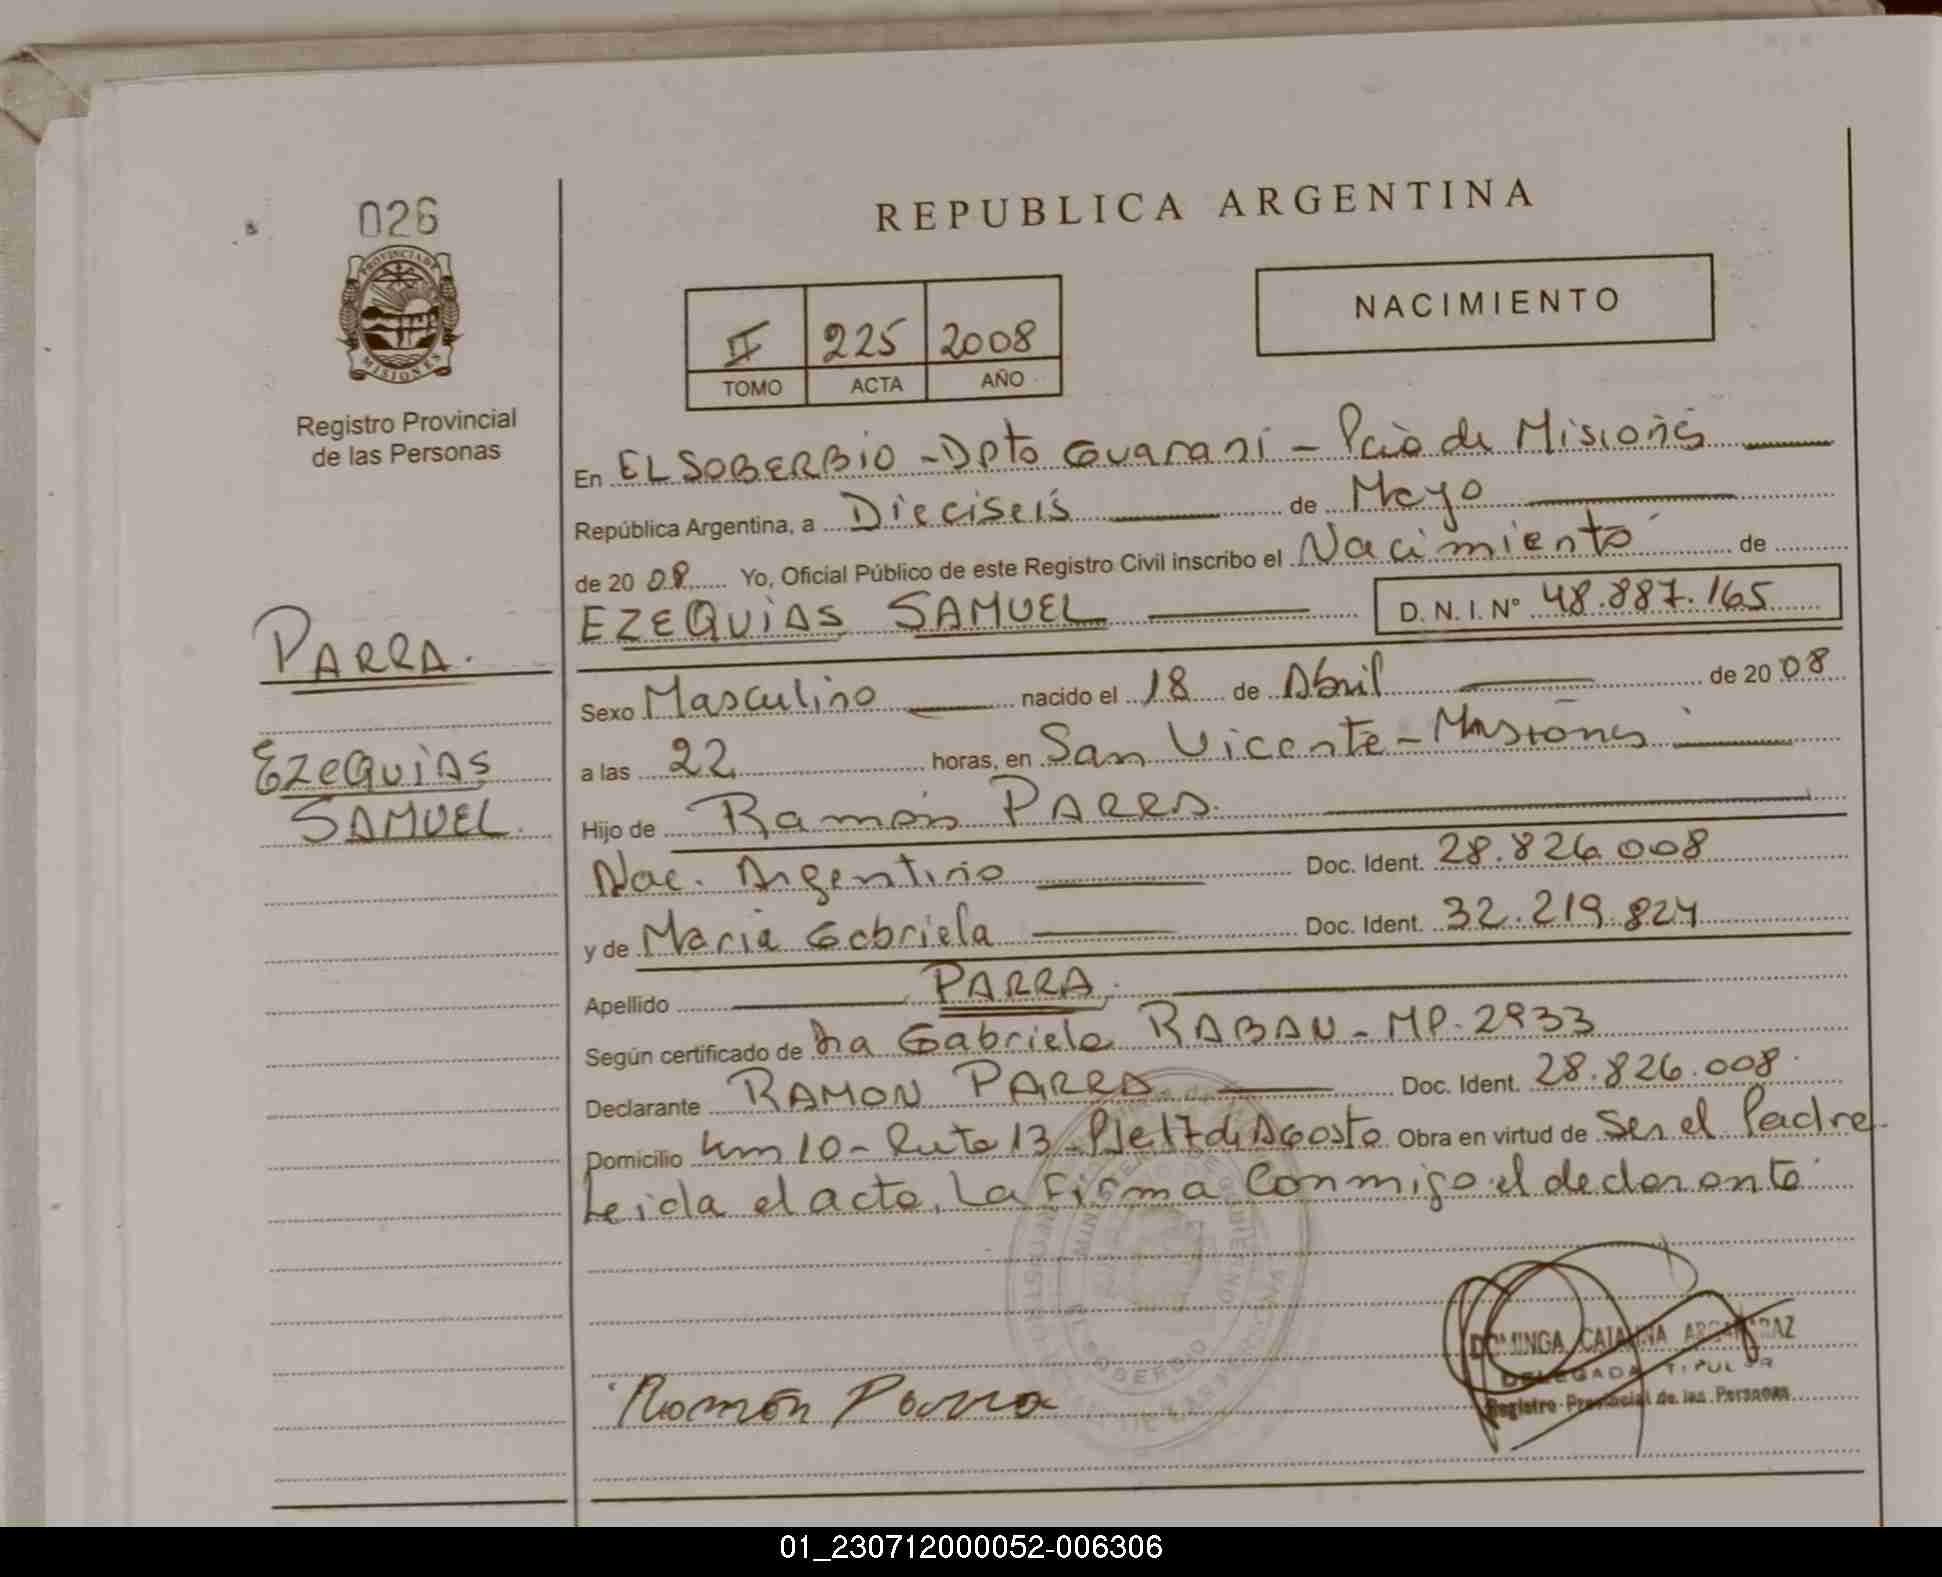 026
PROVINCIA DE
MISIONES
Registro Provincial
de las Personas
REPUBLICA ARGENTINA
II 225 2008
TOMO ACTA AÑO
NACIMIENTO
En EL SOBERBIO - Dpto Guaraní - Pcia de Misiones
República Argentina, a Dieciseis de Mayo
de 20 08 Yo, Oficial Público de este Registro Civil inscribo el Nacimiento de
EZEQUIAS SAMUEL D. N. I. Nº 48.887.165
PARRA.
EZEQUIAS
SAMUEL.
Sexo Masculino nacido el 18 de Abril de 20 08
a las 22 horas, en San Vicente - Misiones
Hijo de Ramón PARRA.
Nac. Argentino Doc. Ident. 28.826.008
y de Maria Gabriela Doc. Ident. 32.219.824
Apellido PARRA.
Según certificado de Dra Gabriela RABAN - MP. 2933
Declarante RAMON PARRA Doc. Ident. 28.826.008.
Domicilio Km 10 - Ruta 13 - Pje 17 de Agosto Obra en virtud de Ser el Padre.
Leida el acta, La Firma Conmigo el declarante
Ramón Parra
DOMINGA CATALINA
DELEGADA TITULAR
Registro Provincial de las Personas
SOBERBIO
01_230712000052-006306